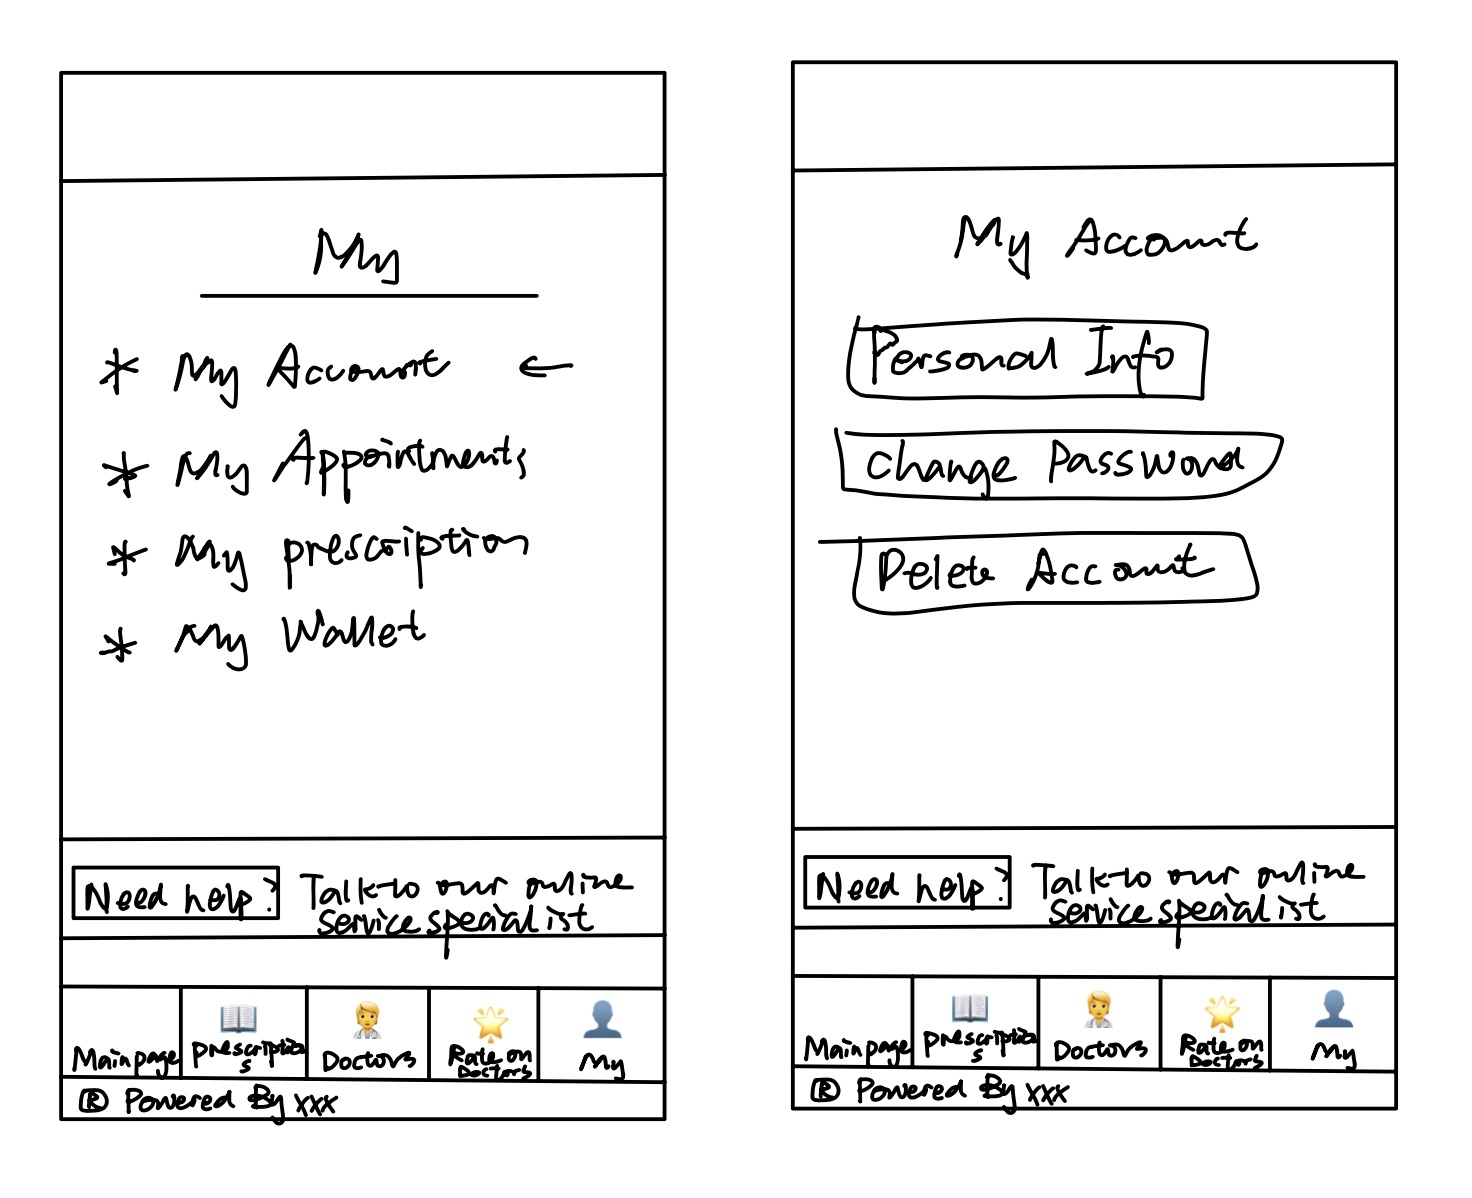 My
* My Account ←
* My Appointments
* My prescription
* My Wallet
Need help?
Talk to our online
service specialist
Main page
prescription
s
Doctors
Rate on
Doctors
My
® Powered By xxx
My Account
Personal Info
Change Password
Delete Account
Need help?
Talk to our online
service specialist
Main page
prescription
s
Doctors
Rate on
Doctors
My
® Powered By xxx